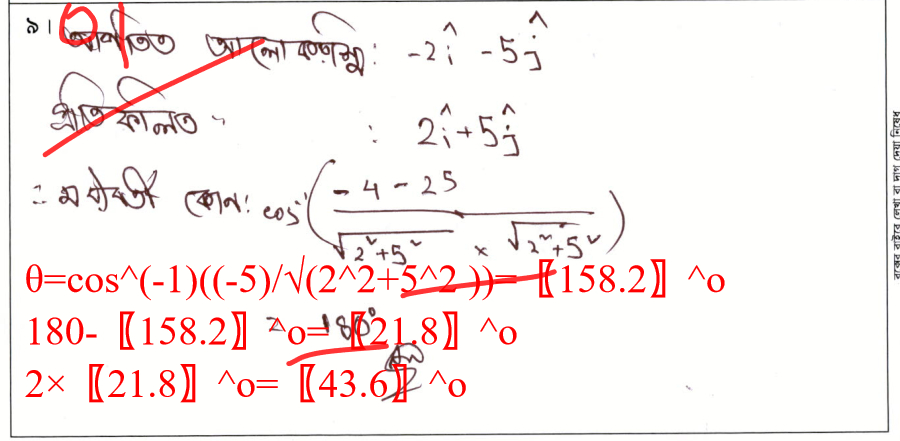 ৯। আপতিত আলোকরশ্মি: -2î -5ĵ
প্রতিফলিত " : 2î+5ĵ
∴ মধ্যবর্তী কোন: cos⁻¹(-4-25 / √2²+5² × √2²+5²)
θ=cos^(-1)((-5)/√(2^2+5^2 ))=〖158.2〗^o
= 180°
180-〖158.2〗^o=〖21.8〗^o
2×〖21.8〗^o=〖43.6〗^o
বক্সের বাইরে লেখা বা দাগ দেয়া নিষেধ